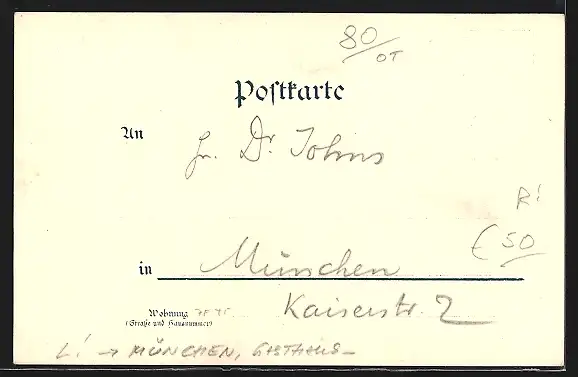 80/OT
Postkarte
An
Hr. Dr. Johns
R!
€ 50
in München
Wohnung
(Straße und Hausnummer)
Kaiserstr. 2
L! → MÜNCHEN, GASTHAUS –